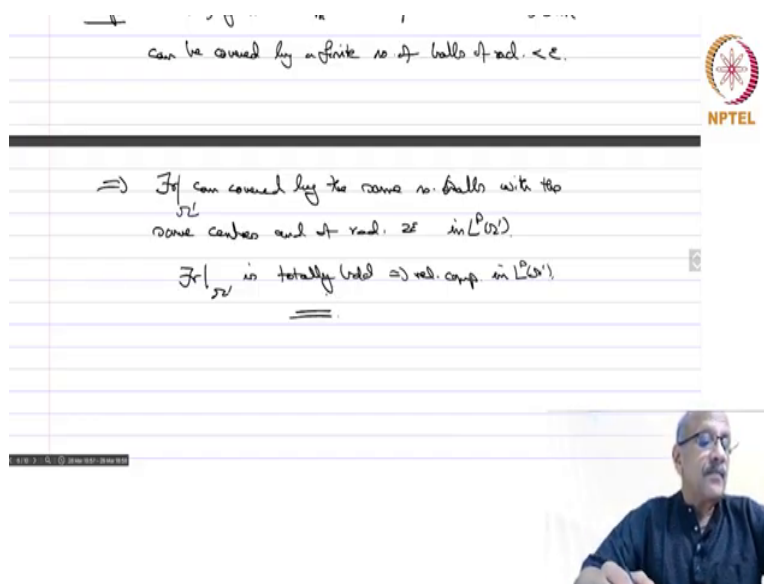 can be covered by a finite no. of balls of rad. < ε.
NPTEL
⇒ ℱ|Ω' can covered by the same no. balls with the
same centres and of rad. 2ε in Lᵖ(Ω').
ℱ|Ω' is totally bdd ⇒ rel. comp. in Lᵖ(Ω').